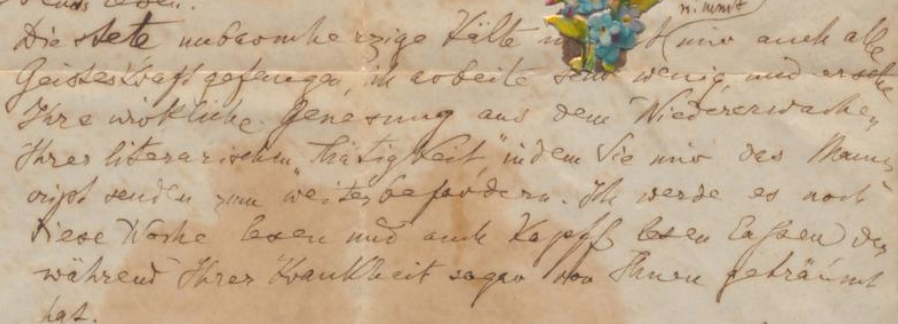 nimmt
Die stete unbarmherzige Kälte mir auch alle
Geisteskraft gefangen, ich arbeite sehr wenig und ersehe
Ihre wirkliche Genesung aus dem Wiedererwachen
Ihrer literarischen Thätigkeit indem Sie mir das Manus
cript senden zum weiterbefördern. Ich werde es noch
diese Woche lesen und auch Kapff lesen lassen der
während Ihrer Krankheit sogar von Ihnen geträumt
hat.